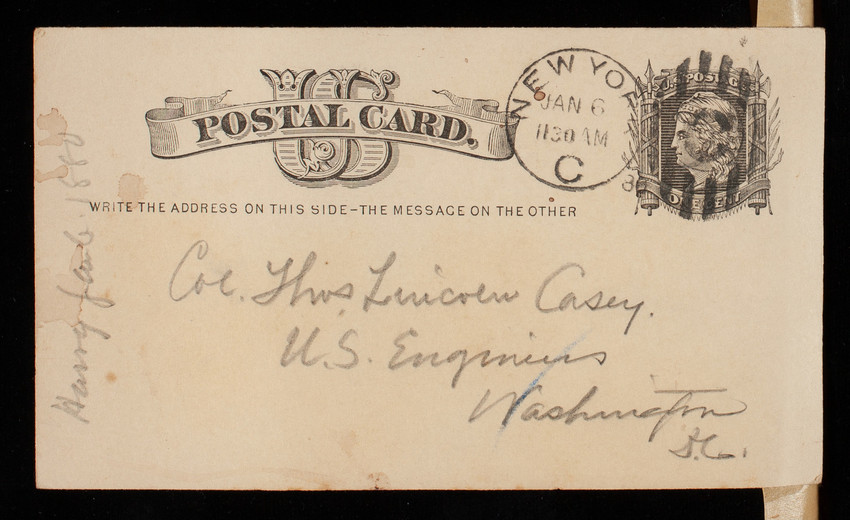 US
POSTAL CARD.
NEW YORK
JAN 6
1130 AM
C
U.S. POSTAGE
ONE CENT
WRITE THE ADDRESS ON THIS SIDE-THE MESSAGE ON THE OTHER
Col. Thos. Lincoln Casey.
U.S. Engineers
Washington
D.C.
Harry 1880